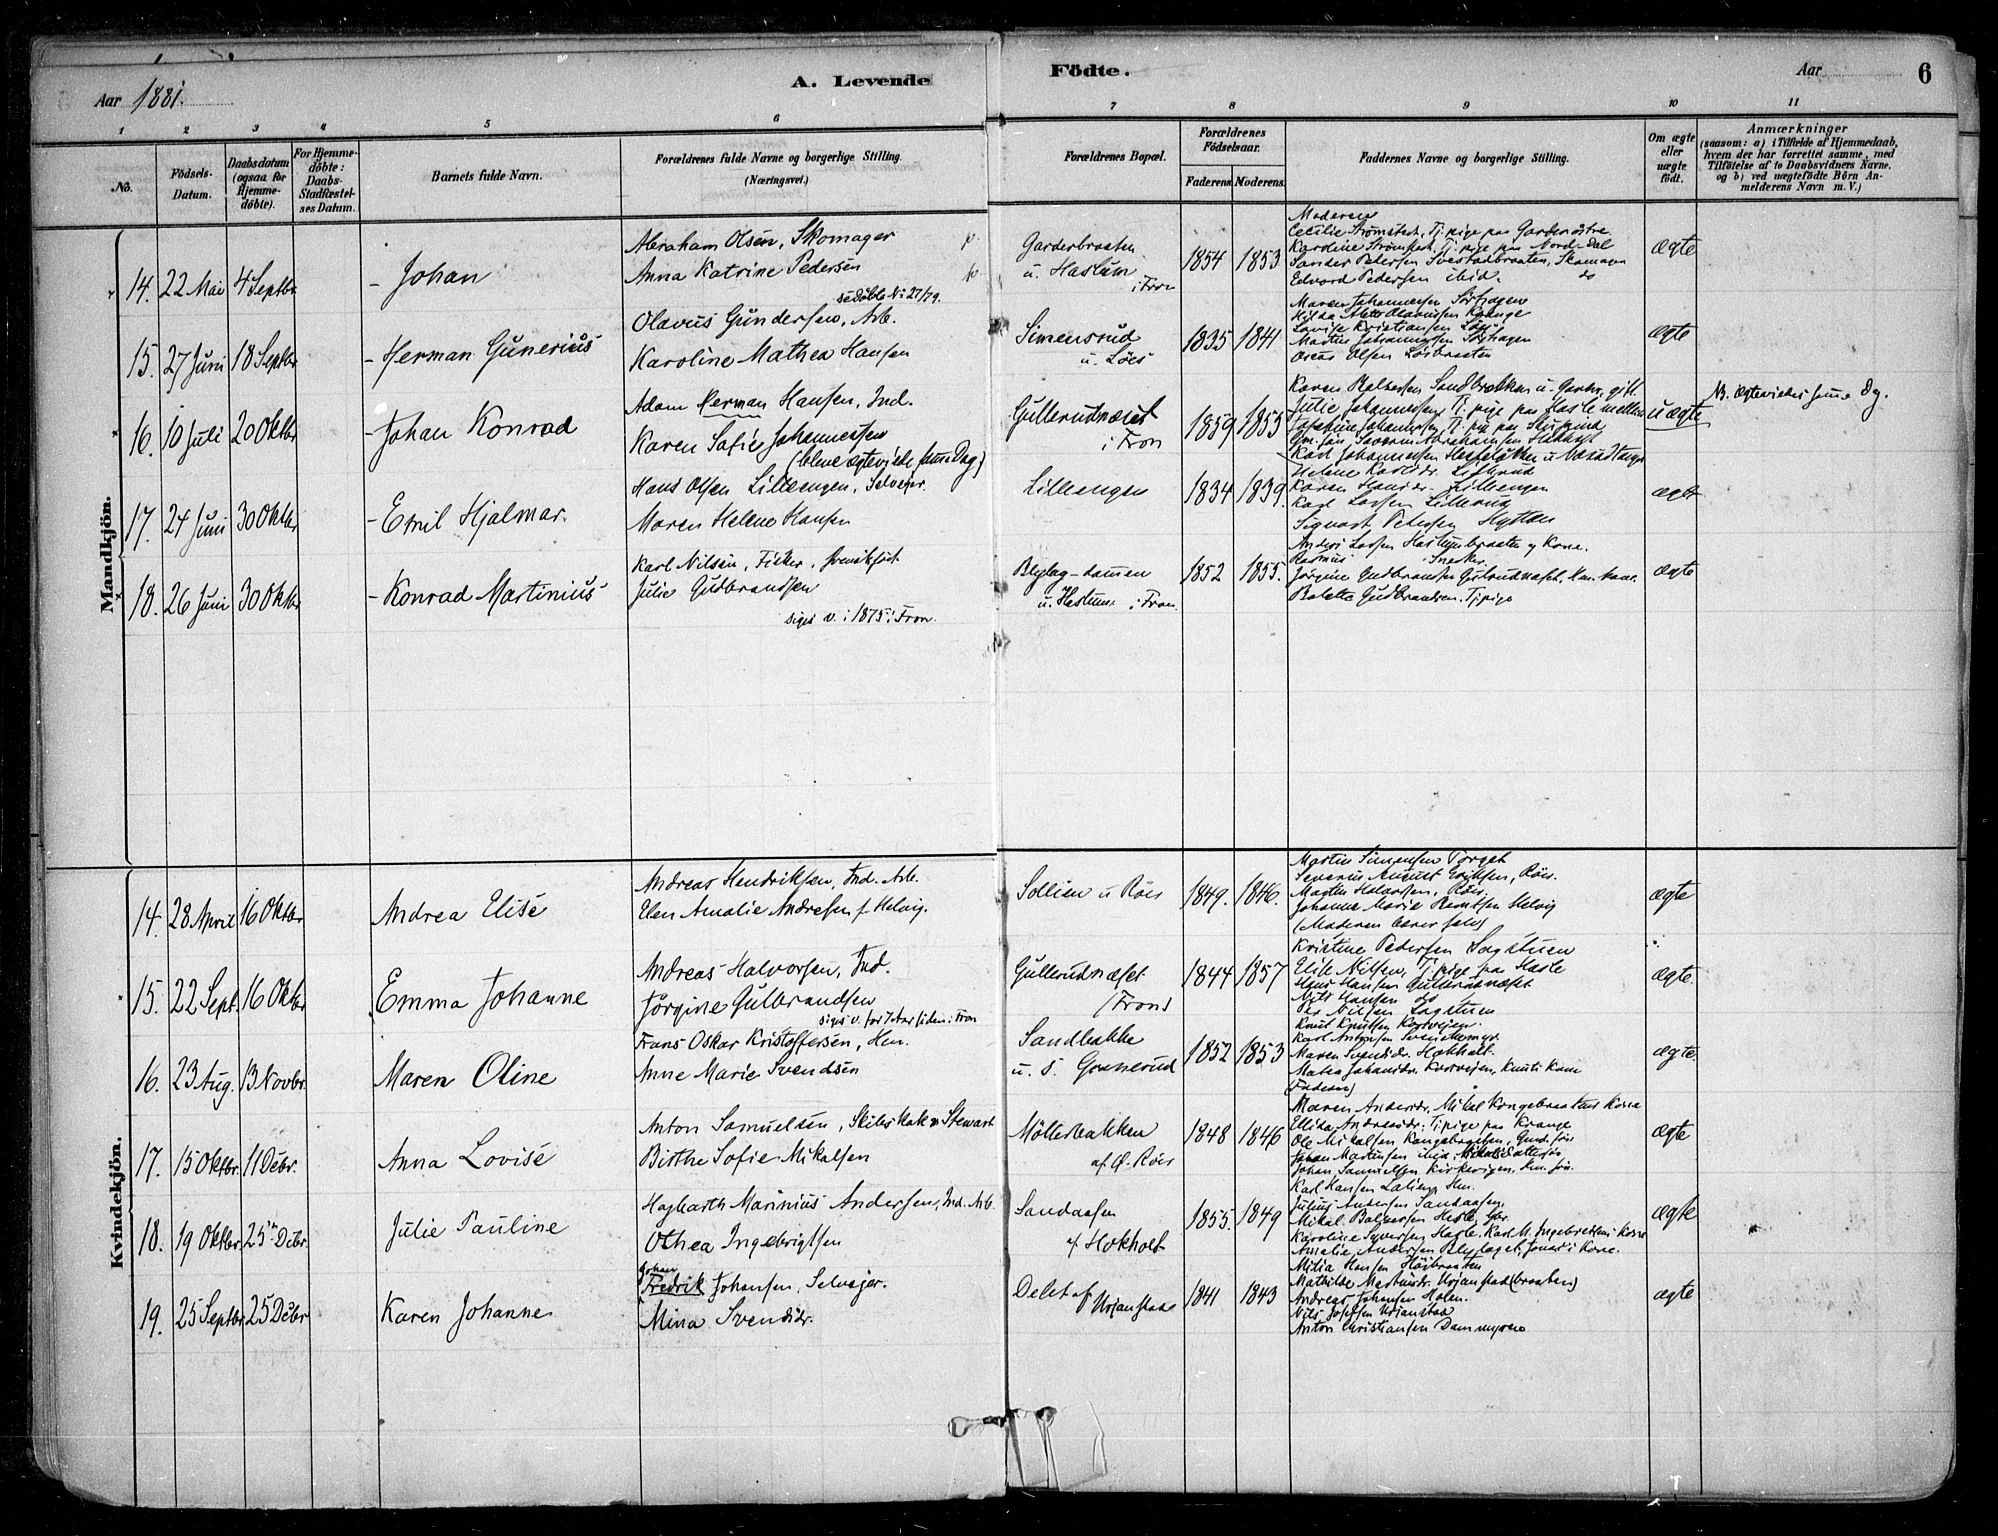 Aar 1881.
A. Levende
Födte.
Aar
6
1
2
3
4
5
6
7
8
9
10
11
No.
Födsels-
Datum.
Daabsdatum
(ogsaa för
Hjemme-
döbte).
For Hjemme-
döbte:
Daabs-
Stadfæstel-
ses Datum.
Barnets fulde Navn.
Forældrenes fulde Navne og borgerlige Stilling.
(Næringsvei.)
Forældrenes Bopæl.
Forældrenes
Födselsaar.
Faderens.
Moderens.
Faddernes Navne og borgerlige Stilling.
Om ægte
eller
uægte
födt.
Anmærkninger
(saasom: a) i Tilfælde af Hjemmedaab,
hvem der har forrettet samme, med
Tilföielse af to Daabsvidners Navne,
og b) ved uægtefödte Börn An-
melderens Navn m. V.)
Mandkjön.
14. 22 Mai 4 Septbr. - Johan
Abraham Olsen, Skomager
Anna Katrine Pedersen
se Döbte No 27/79.
Garderbraaten
u. Haslum
i Fron
1854 1853
Moderen
Cecilie Strömstad, Tj. pige paa
Karoline Strömstad, Tj. pige paa Nord-Dal
Sander Pedersen Svestadbraaten, Skomager
Edvard Pedersen ibid. do
ægte
15. 27 Juni 18 Septbr - Herman Gunerius
Olavus Gundersen, Arb.
Karoline Mathea Hansen
Simensrud
u. Löes
1835 1841
Maren Johannesen
Hilda Olavusen Krange
Lovise Kristiansen Löes
Martin Johannesen
Oscar Olsen Lösbraaten
ægte
16. 10 Juli 2 Oktbr - Johan Konrad
Adam Herman Hansen, Ind.
Karen Sofie Johannessen
(bleve ægteviede samme Dag)
Gullerudnæset
i Fron
1859 1853
Karen Sandbrække u. gift.
Julie Johannesen, Tj. pige paa Hasle mellem
Josefine Johannesen, Tj. pige paa
Abrahamsen
Karl Johannesen
uægte
NB. ægteviedes samme Dg.
17. 24 Juni 30 Oktbr - Emil Hjalmar.
Hans Olsen Lilleengen, Selveier.
Maren Helene Hansen
Lilleengen
1834 1839.
Helene Karlsdr. Lillerud
Karen Hansdr. Lilleengen
Karl Larsen Lillerud
Sigvart Petersen Hytten
ægte
18. 26 Juni 30 Oktbr - Konrad Martinius
Karl Nilsen, Fisker, svenskfödt.
Julie Gudbrandsen
siges v. i 1875 i Fron.
Blylag-dammen
u. Haslum i Fron.
1852 1855.
Anders Larsen Haslumbraaten og Kone.
Rasmus Snedker
Jörgine Gudbrandsen Gulrudnæset,
Bolette Gudbrandsen, Tj. pige
ægte
Kvindekjön.
14. 28 April 16 Oktbr Andrea Elise
Andreas Hendriksen, Ind. Arb.
Elen Amalie Andresen f. Helvig.
Sollien u Röis
1849. 1846.
Martin Simensen Torget
Severin August Eriksen, Röis.
Martin Halvorsen, Röis
Johanne Marie Berntsen Helvig
(Moderen bærer selv)
ægte
15. 22 Sept. 16 Oktbr Emma Johanne
Andreas Halvorsen, Ind.
Jörgine Gulbrandsen
siges v. for 7 Aar siden i Fron
Gullerudnæset
(Fron)
1844 1857
Kristine Pedersen Sagstuen
Elise Nilsen, Tj. pige paa Hasle
Hans Hansen Gullerudnæset
Nils Hansen do
Per Nilsen Sagstuen
ægte.
16. 23 Aug. 13 Novbr. Maren Oline
Frans Oskar Kristoffersen, Hm.
Anne Marie Svendsen
Sandbakke
u. S. Grönerud
1852 1853
Knut Knutsen Korsvejen.
Karl Antonsen
Maren Svendsdr. Hokholt.
Mathea Johansdr. Korsvejen, Knuts Kone
(Faderen)
ægte
17. 15 Oktbr. 11 Debr. Anna Lovise
Anton Samuelsen, Skibskok & Stewart
Birthe Sofie Mikalsen
Möllerbakken
af Ö. Röis
1848 1846
Maren Andersdr. Mikal Kongebraatens Kone
Ellida Andreasdr. Tj. pige paa Krange
Ole Mikalsen Kongebraaten, Gmd. sön
Johan Martinsen ibid.
Johan Samuelsen Kirkevigen, Hm. sön.
ægte
18. 19 Oktbr. 25de Debr. Julie Pauline
Hagbarth Marinius Andersen, Ind. Arb.
Othea Ingebrigtsen
Sandaasen
af Hokholt
1855. 1849
Karl Hansen Lalien, Hm.
Julius Andersen Sandaasen,
Mikal Baltzersen Hasle,
Karoline Syversen Hasle. Karl M. Ingebretsens Kone
Amalie Andersen Blylaget, Jonas's Kone.
ægte
19. 25 Septbr. 25 Debr Karen Johanne
Johan
Fredrik Johansen, Selvejer.
Mina Svendsdr.
Delet af Urjanstad
1841 1843
Milia Hansen Höibraaten
Mathilde Martinsdr. Urjanstad(braaten)
Andreas Johansen Holen.
Nils Josefsen Urjanstad
Anton Christiansen Dammyren
ægte